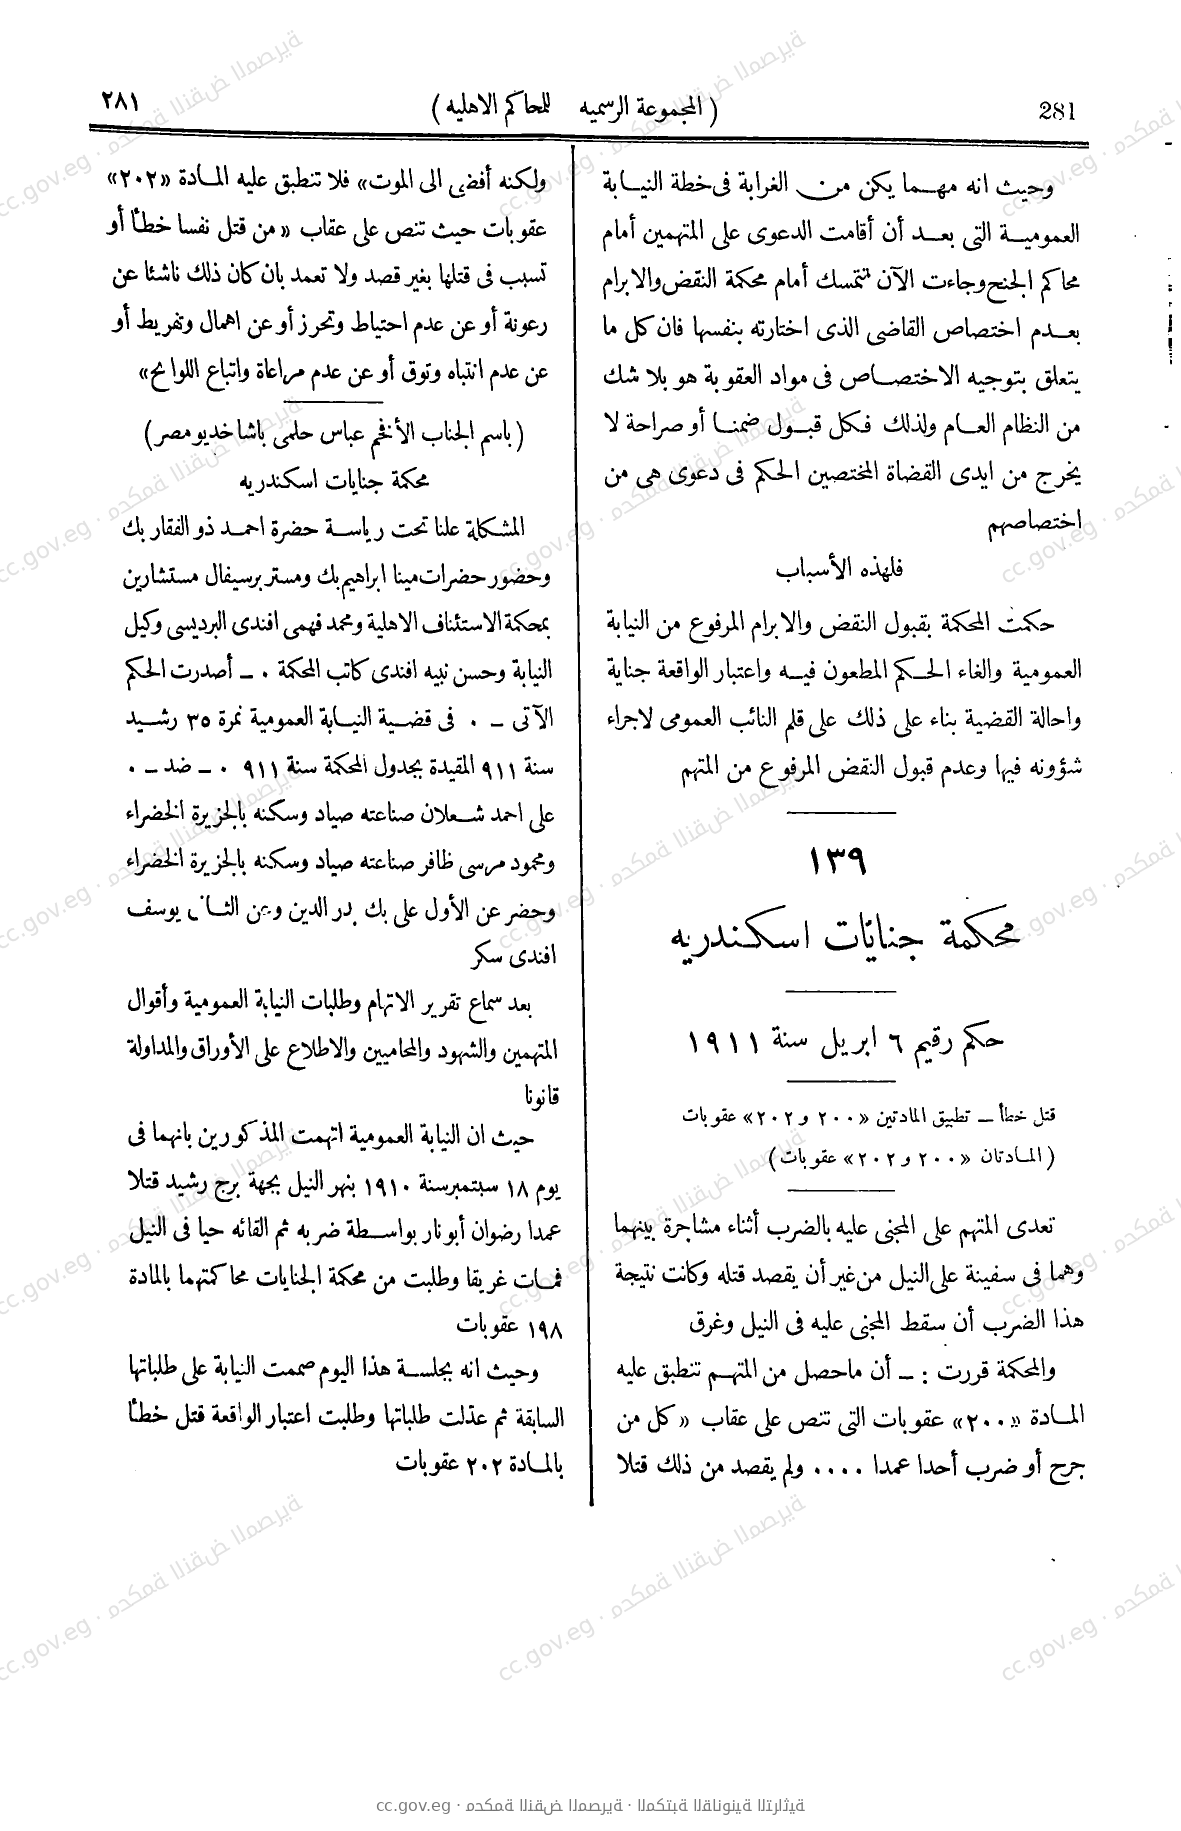 281
( المجموعة الرسميه للمحاكم الاهليه )
٢٨١
وحيث انه مهما يكن من الغرابة فى خطة النيابة
العمومية التى بعد أن أقامت الدعوى على المتهمين أمام
محاكم الجنح وجاءت الآن تتمسك أمام محكمة النقض والابرام
بعدم اختصاص القاضى الذى اختارته بنفسها فان كل ما
يتعلق بتوجيه الاختصاص فى مواد العقوبة هو بلا شك
من النظام العام ولذلك فكل قبول ضمنا أو صراحة لا
يخرج من ايدى القضاة المختصين الحكم فى دعوى هى من
اختصاصهم
فلهذه الأسباب
حكمت المحكمة بقبول النقض والابرام المرفوع من النيابة
العمومية والغاء الحكم المطعون فيه واعتبار الواقعة جناية
واحالة القضية بناء على ذلك على قلم النائب العمومى لاجراء
شؤونه فيها وعدم قبول النقض المرفوع من المتهم
١٣٩
محكمة جنايات اسكندريه
حكم رقيم ٦ ابريل سنة ١٩١١
قتل خطأ – تطبيق المادتين «٢٠٠ و ٢٠٢» عقوبات
( المادتان «٢٠٠ و ٢٠٢» عقوبات )
تعدى المتهم على المجنى عليه بالضرب أثناء مشاجرة بينهما
وهما فى سفينة على النيل من غير أن يقصد قتله وكانت نتيجة
هذا الضرب أن سقط المجنى عليه فى النيل وغرق
والمحكمة قررت : – أن ماحصل من المتهم تنطبق عليه
المادة «٢٠٠» عقوبات التى تنص على عقاب « كل من
جرح أو ضرب أحدا عمدا .... ولم يقصد من ذلك قتلا
ولكنه أفضى الى الموت» فلا تنطبق عليه المادة «٢٠٢»
عقوبات حيث تنص على عقاب « من قتل نفسا خطأ أو
تسبب فى قتلها بغير قصد ولا تعمد بان كان ذلك ناشئا عن
رعونة أو عن عدم احتياط وتحرز أو عن اهمال وتفريط أو
عن عدم انتباه وتوق أو عن عدم مراعاة واتباع اللوائح»
( باسم الجناب الأفخم عباس حلمى باشا خديو مصر )
محكمة جنايات اسكندريه
المشكلة علنا تحت رياسة حضرة احمد ذو الفقار بك
وحضور حضرات مينا ابراهيم بك ومستر برسيفال مستشارين
بمحكمة الاستئناف الاهلية ومحمد فهمى افندى البرديسى وكيل
النيابة وحسن نبيه افندى كاتب المحكمة . – أصدرت الحكم
الآتى – . فى قضية النيابة العمومية نمرة ٣٥ رشيد
سنة ٩١١ المقيدة بجدول المحكمة سنة ٩١١ . – ضد – .
على احمد شعلان صناعته صياد وسكنه بالجزيرة الخضراء
ومحمود مرسى ظافر صناعته صياد وسكنه بالجزيرة الخضراء
وحضر عن الأول على بك بدر الدين وعن الثانى يوسف
افندى سكر
بعد سماع تقرير الاتهام وطلبات النيابة العمومية وأقوال
المتهمين والشهود والمحاميين والاطلاع على الأوراق والمداولة
قانونا
حيث ان النيابة العمومية اتهمت المذكورين بانهما فى
يوم ١٨ سبتمبر سنة ١٩١٠ بنهر النيل بجهة برج رشيد قتلا
عمدا رضوان أبو نار بواسطة ضربه ثم القائه حيا فى النيل
فمات غريقا وطلبت من محكمة الجنايات محاكمتهما بالمادة
١٩٨ عقوبات
وحيث انه بجلسة هذا اليوم صممت النيابة على طلباتها
السابقة ثم عدلت طلباتها وطلبت اعتبار الواقعة قتل خطأ
بالمادة ٢٠٢ عقوبات
cc.gov.eg · محكمة النقض المصرية · المكتبة القانونية التراثية